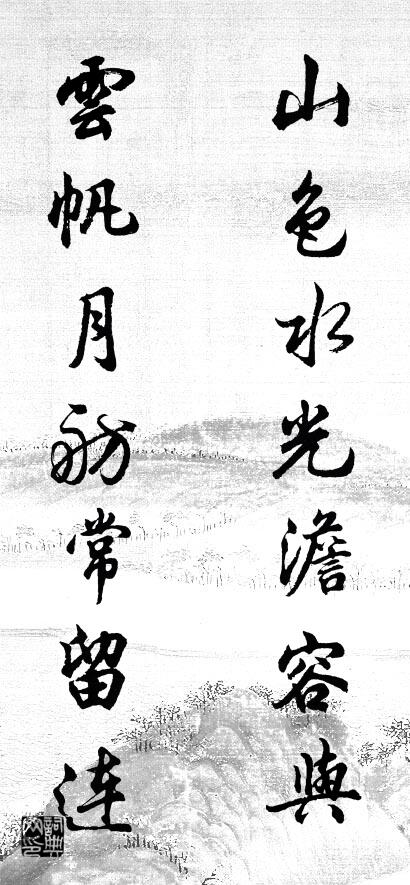 山色水光澹容與
雲帆月舫常留連